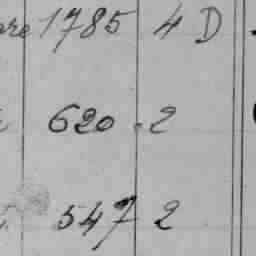 are 1785 4 D
620 . 2
547 2